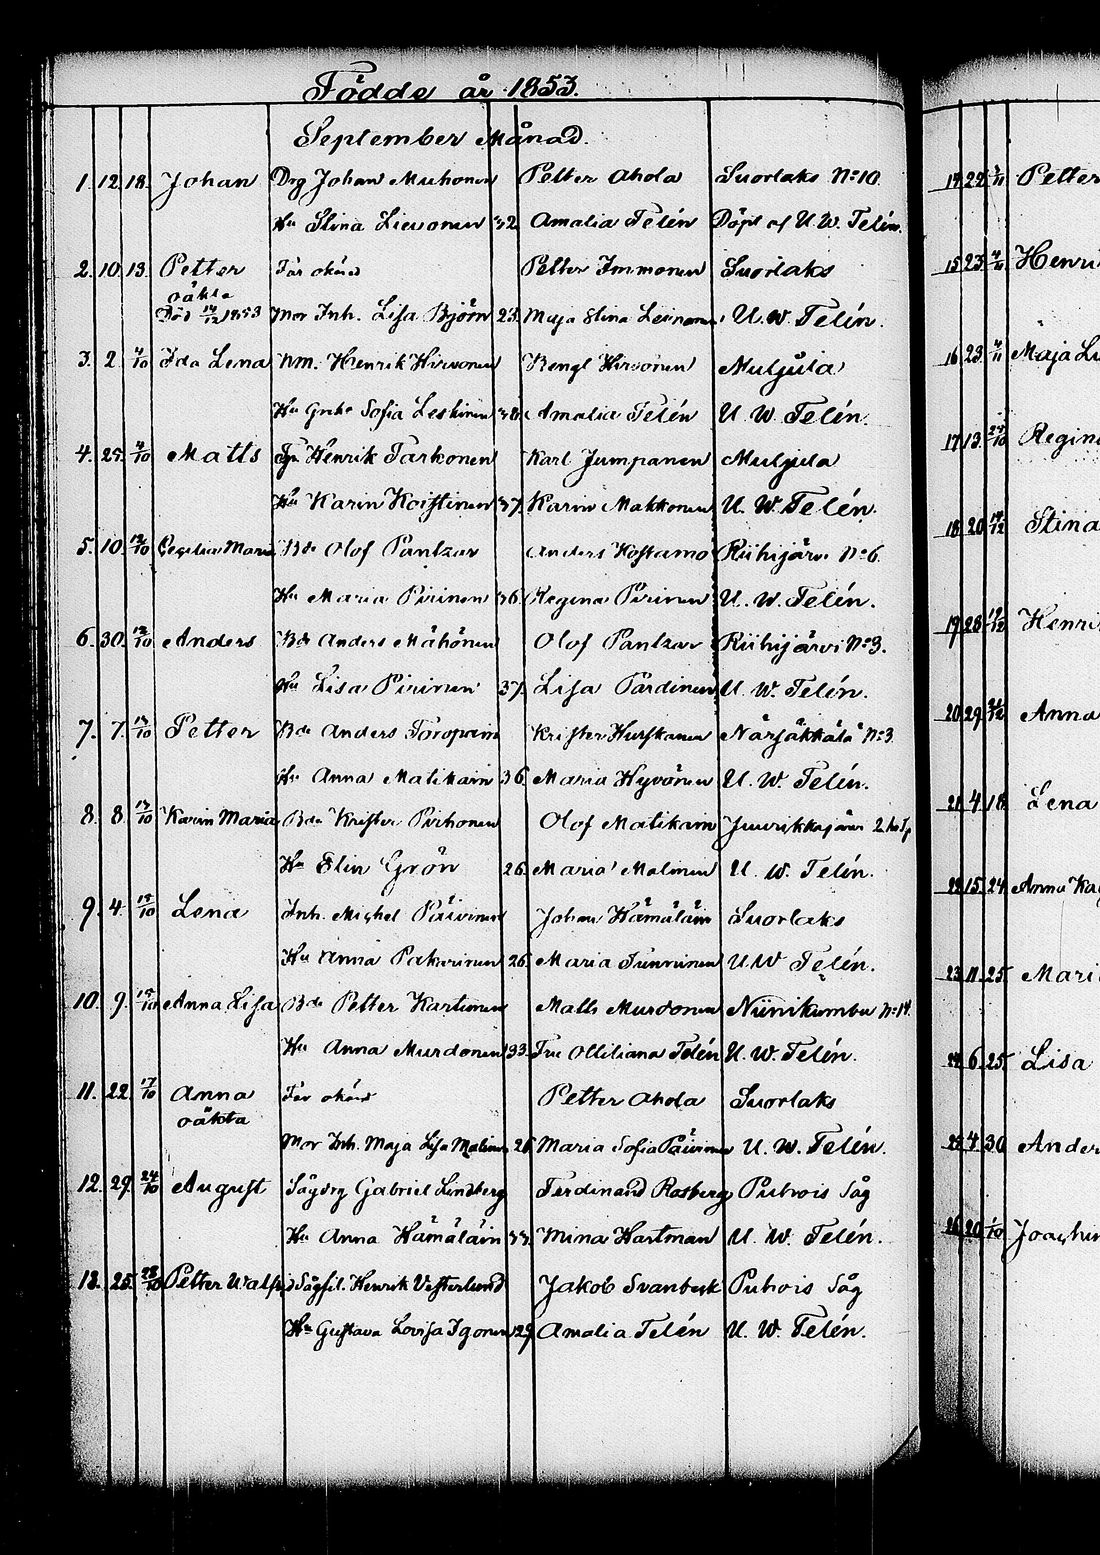 Födde år 1853.
September Månad.
1. 12. 18. Johan Drg Johan Muhonen Petter Ahola Suorlaks No 10.
Hu Stina Lievonen 32 Amalia Telén Döpt af U. W. Telén.
2. 10. 13. Petter Far okänd Petter Immonen Suorlaks
oäkta
Död 14/12 1853 Mor Inh. Lisa Björn 23. Maja Stina Leinonen U. W. Telén.
3. 2. 4/10 Ida Lena Nm. Henrik Hirvonen Bengt Hirvonen Muljula
Hu Greta Sofia Leskinen 38. Amalia Telén U. W. Telén.
4. 25. 4/10 Matts Henrik Tarkonen Karl Jumpanen Muljula
Hu Karin Koistinen 37. Karin Makkonen U. W. Telén.
5. 10. 12/10 Cecilia Maria Bde Olof Pantzar Anders Kostamo Riihijärvi No 6.
Hu Maria Pirinen 36. Regina Pirinen U. W. Telén.
6. 30. 12/10 Anders Bde Anders Mähönen Olof Pantzar Riihijärvi No 3.
Hu Lisa Pirinen 37. Lisa Pardinen U. W. Telén.
7. 7. 13/10 Petter Bde Anders Toropain Krister Hurskanen Närsäkkälä No 3.
Hu Anna Malikain 36. Maria Hyvönen U. W. Telén.
8. 8. 13/10 Karin Maria Bde Krister Pirhonen Olof Matikain Juurikkajärvi 2
Hu Elin Grön 26. Maria Malinen U. W. Telén.
9. 4. 15/10 Lena Inh. Michel Päivinen Johan Hämäläin Suorlaks
Hu Anna Pakarinen 26. Maria Tunninen U. W. Telén.
10. 9. 15/10 Anna Lisa Bde Petter Kartunen Matts Murdonen Niinikumbu No 14.
Hu Anna Murdonen 33. Fru Ottiliana Telén U. W. Telén.
11. 22. 17/10 Anna Far okänd Petter Ahola Suorlaks
oäkta
Mor Inh. Maja Lisa Malinen 26. Maria Sofia Päivinen U. W. Telén.
12. 29. 24/10 August Sågdrg Gabriel Lindberg Ferdinand Rosberg Puhois Såg
Hu Anna Hämäläin 33. Mina Hartman U. W. Telén.
13. 25. 28/10 Petter Walfrid Sågfil. Henrik Vesterlund Jakob Svanberk Puhois Såg
Hu Gustava Lovisa Igonen 29. Amalia Telén U. W. Telén.
14 22 Petter
15 23 Henri
16 23 Maja L
17 13 Regin
18 20 Stina
19 28 Henri
20 29 Anna
21 4 18 Lena
22 15 24 Anna Ka
23 11 25 Mari
24 6 25 Lisa
25 4 30 Ander
26 20 1/10 Joachim